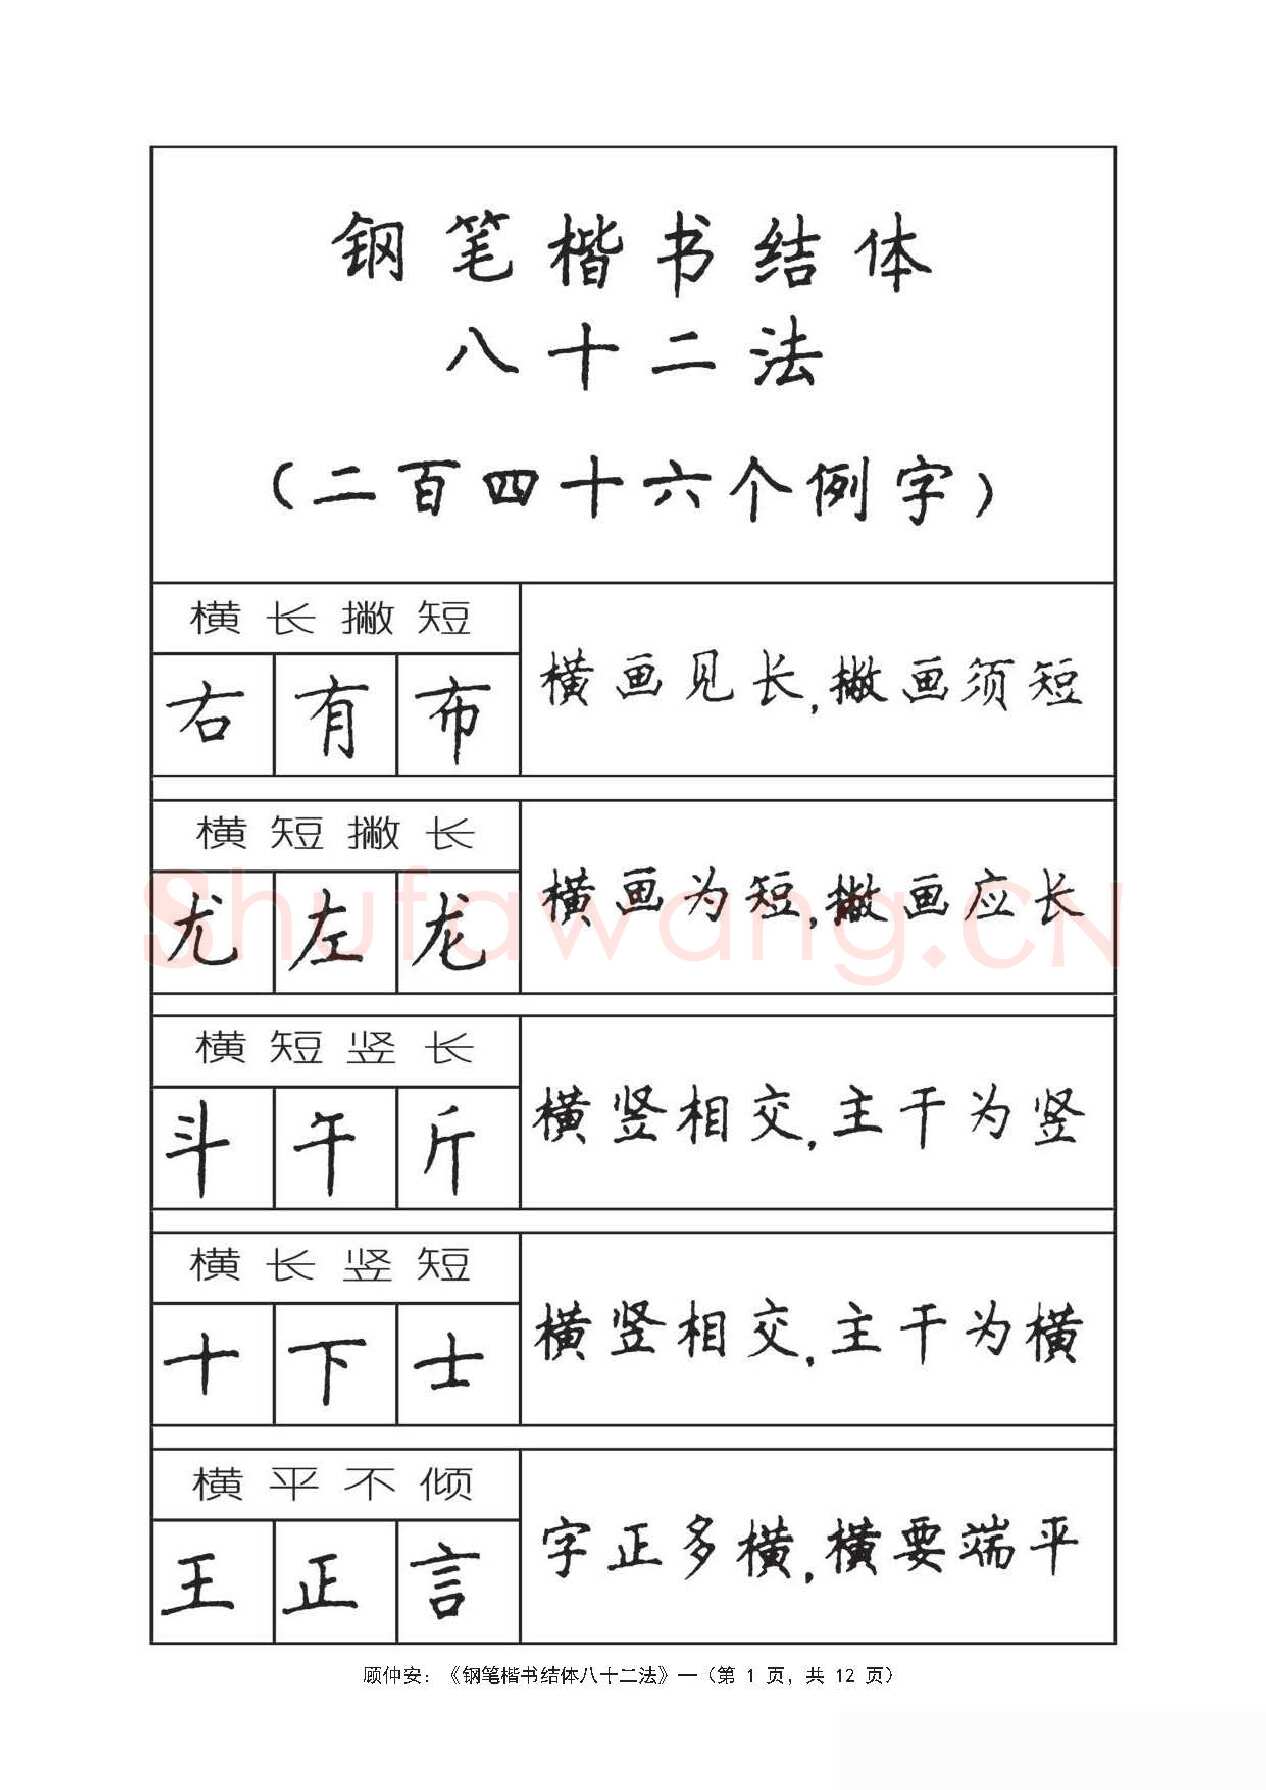 钢笔楷书结体
八十二法
（二百四十六个例字）
横长撇短
右 有 布
横画见长，撇画须短
横短撇长
尤 左 龙
横画为短，撇画应长
横短竖长
斗 午 斤
横竖相交，主干为竖
横长竖短
十 下 士
横竖相交，主干为横
横平不倾
王 正 言
字正多横，横要端平
Shufawang.CN
顾仲安：《钢笔楷书结体八十二法》—（第 1 页，共 12 页）